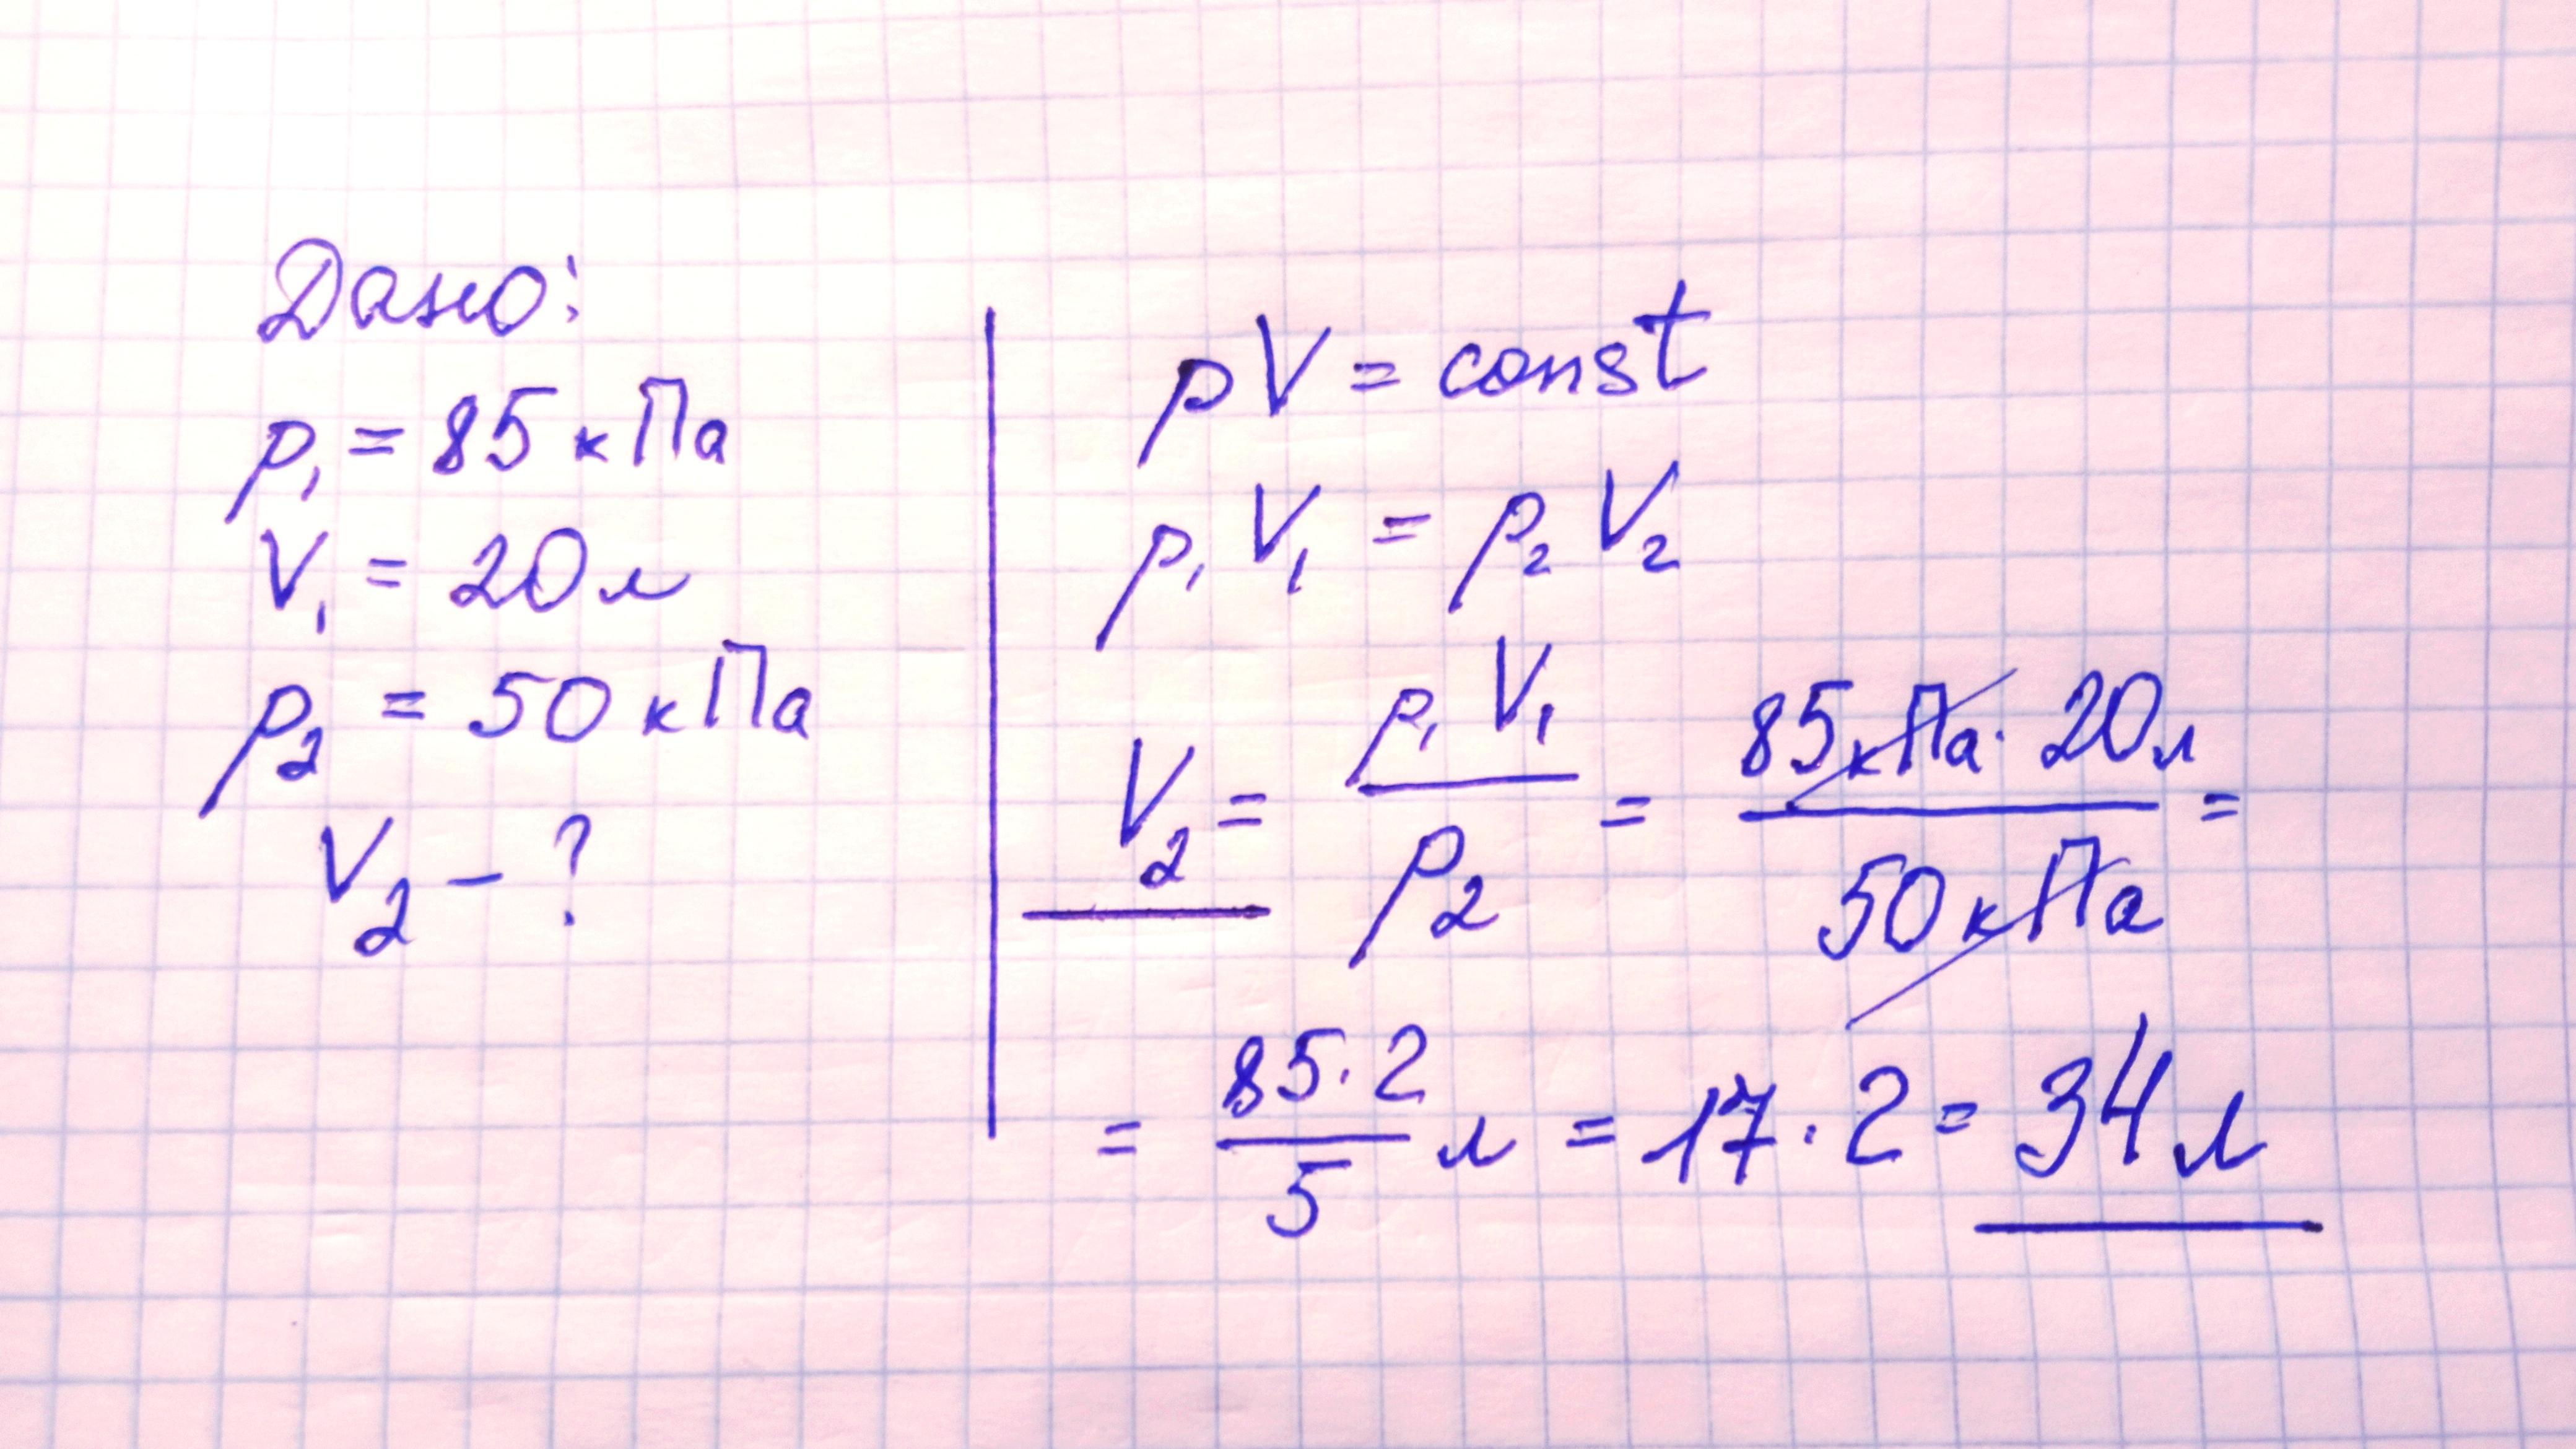 Дано:
p₁ = 85 кПа
V₁ = 20 л
p₂ = 50 кПа
V₂ – ?
pV = const
p₁ V₁ = p₂ V₂
V₂ = p₁ V₁ / p₂ = 85 кПа · 20 л / 50 кПа =
= 85 · 2 / 5 л = 17 · 2 = 34 л